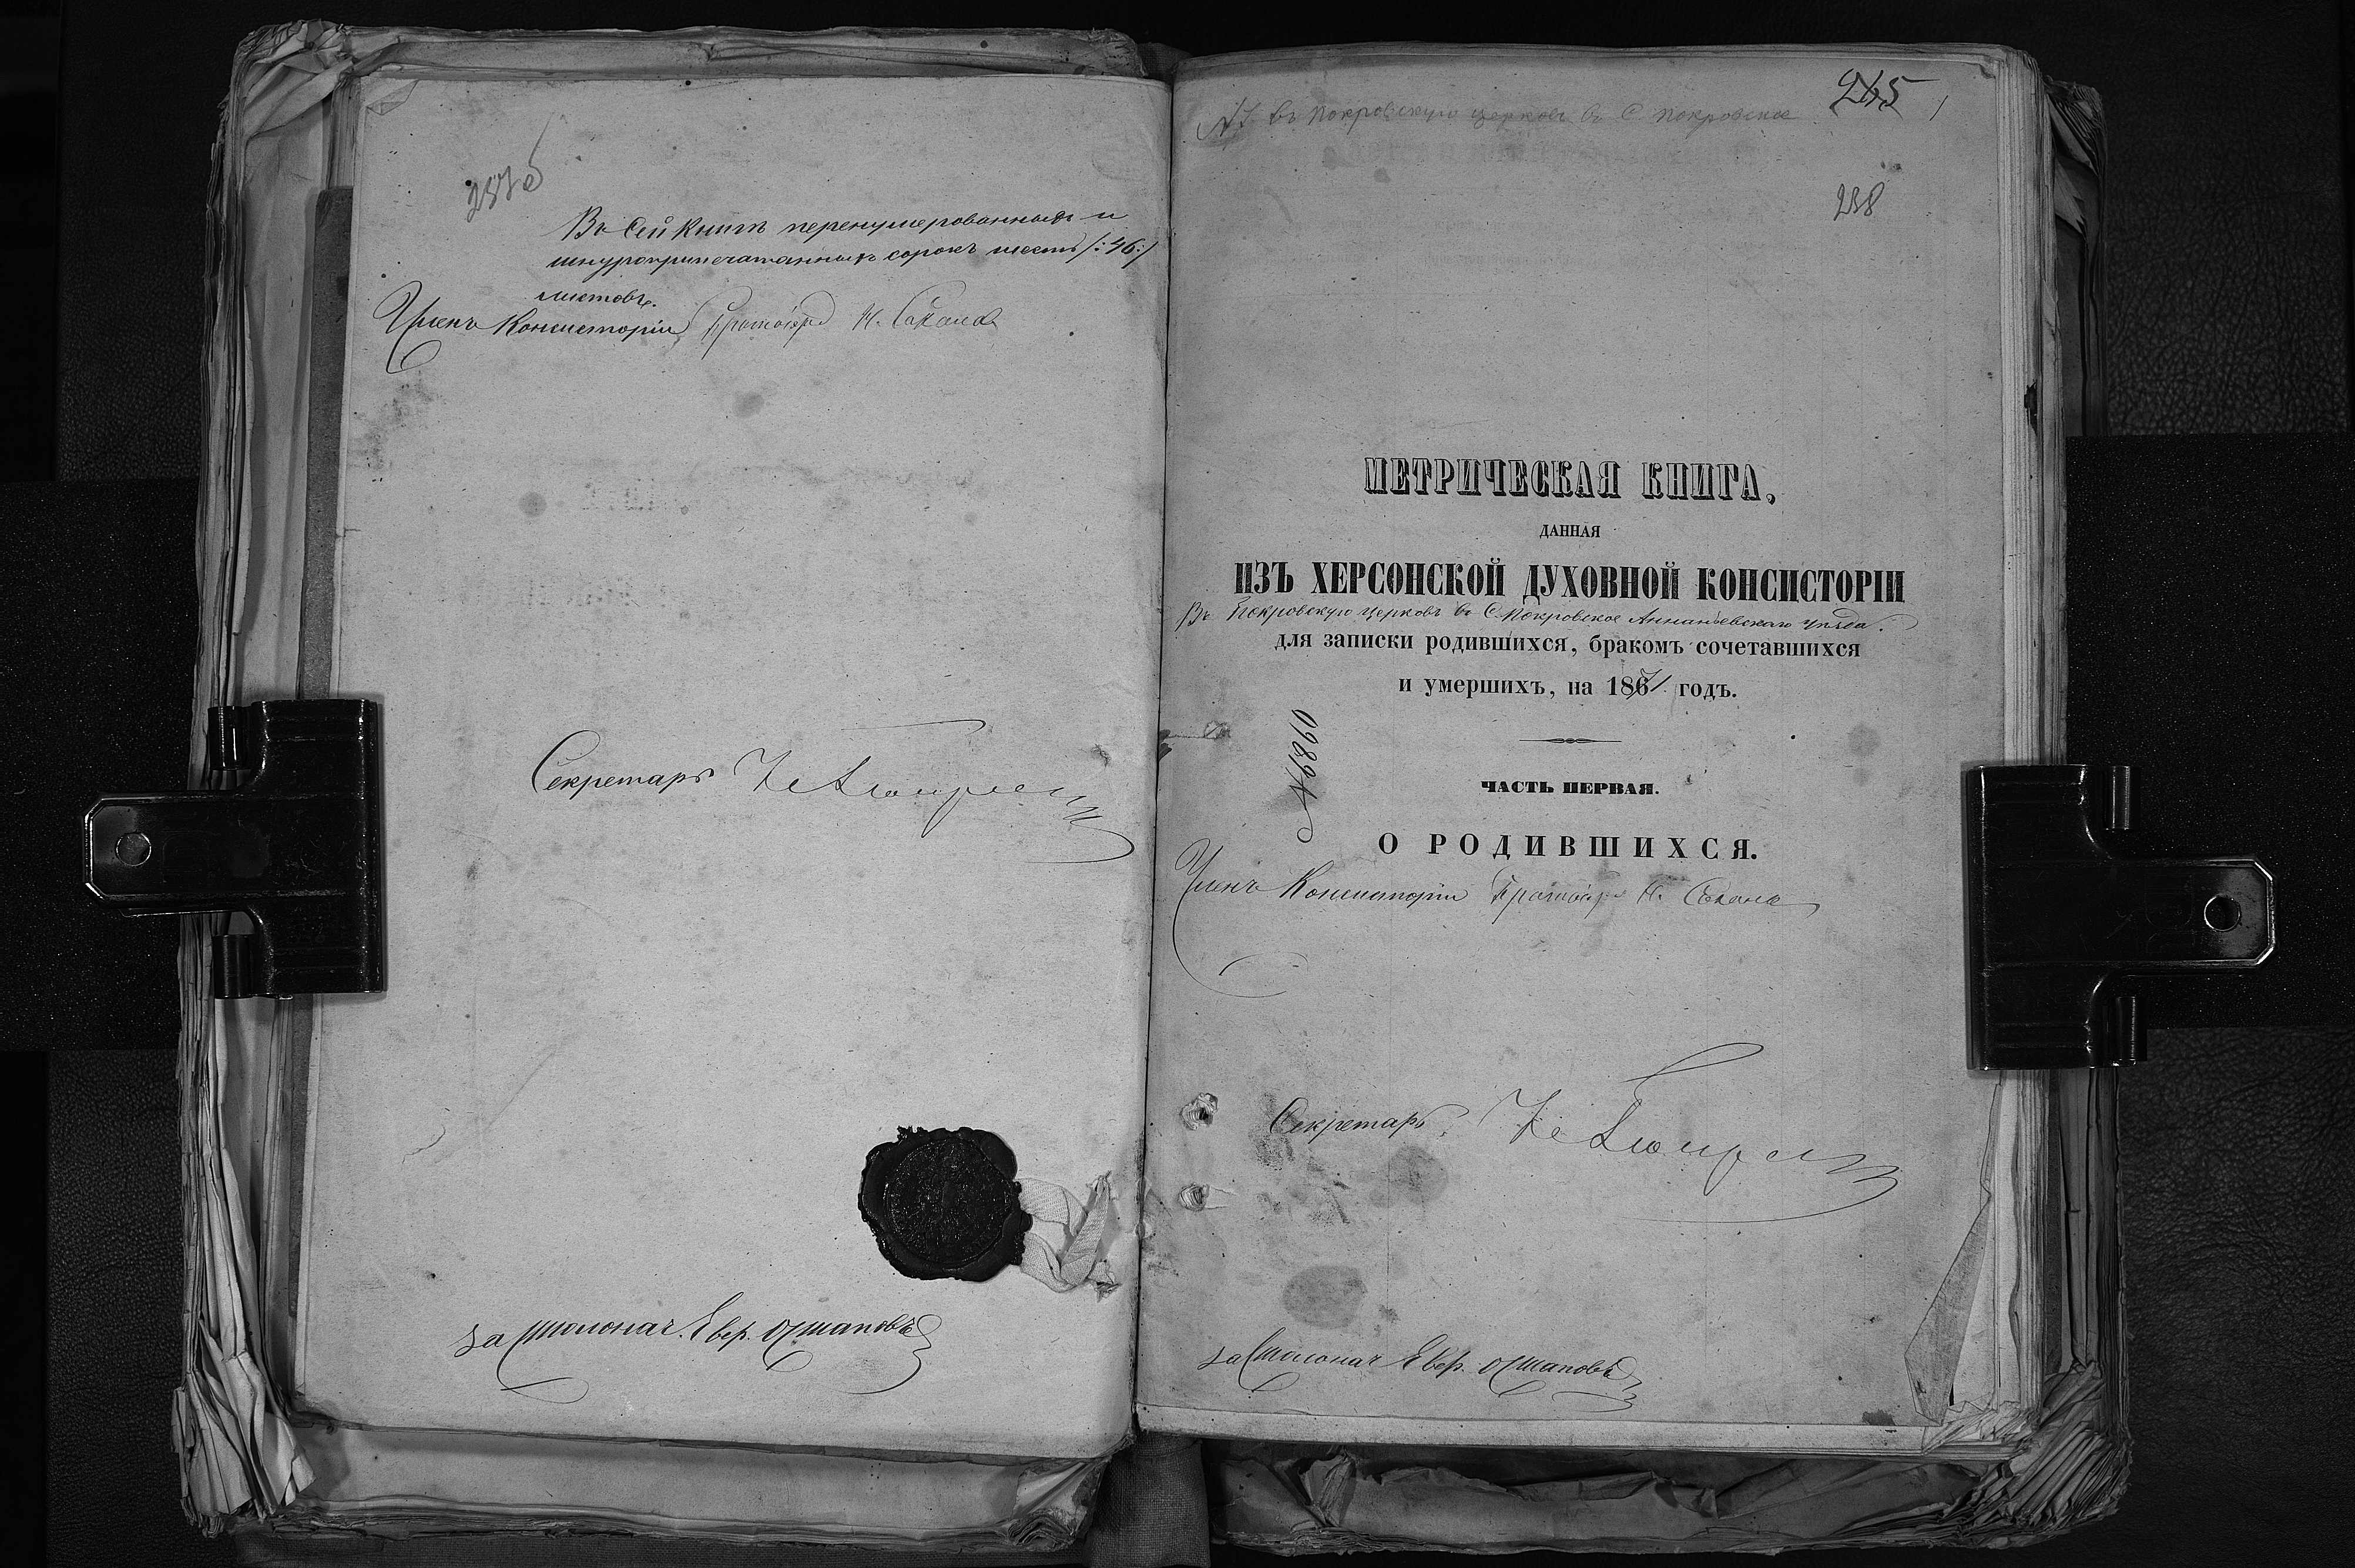 237об
Въ сей книгѣ перенумерованныхъ и
шнуроприпечатанныхъ сорокъ шесть /:46:/
листовъ.
Членъ Консисторіи Протоіерей Н.
Секретарь
За Столонач. Евер. Остаповъ
265 1
въ Покровскую церковь въ С. Покровское
238
МЕТРИЧЕСКАЯ КНИГА,
ДАННАЯ
ИЗЪ ХЕРСОНСКОЙ ДУХОВНОЙ КОНСИСТОРІИ
Въ Покровскую церковь въ С. Покровское Ананьевскаго уѣзда.
для записки родившихся, бракомъ сочетавшихся
и умершихъ, на 1871 годъ.
№ 9860
ЧАСТЬ ПЕРВАЯ.
О РОДИВШИХСЯ.
Членъ Консисторіи Протоіерей Н.
Секретарь
За Столонач Евер. Остаповъ